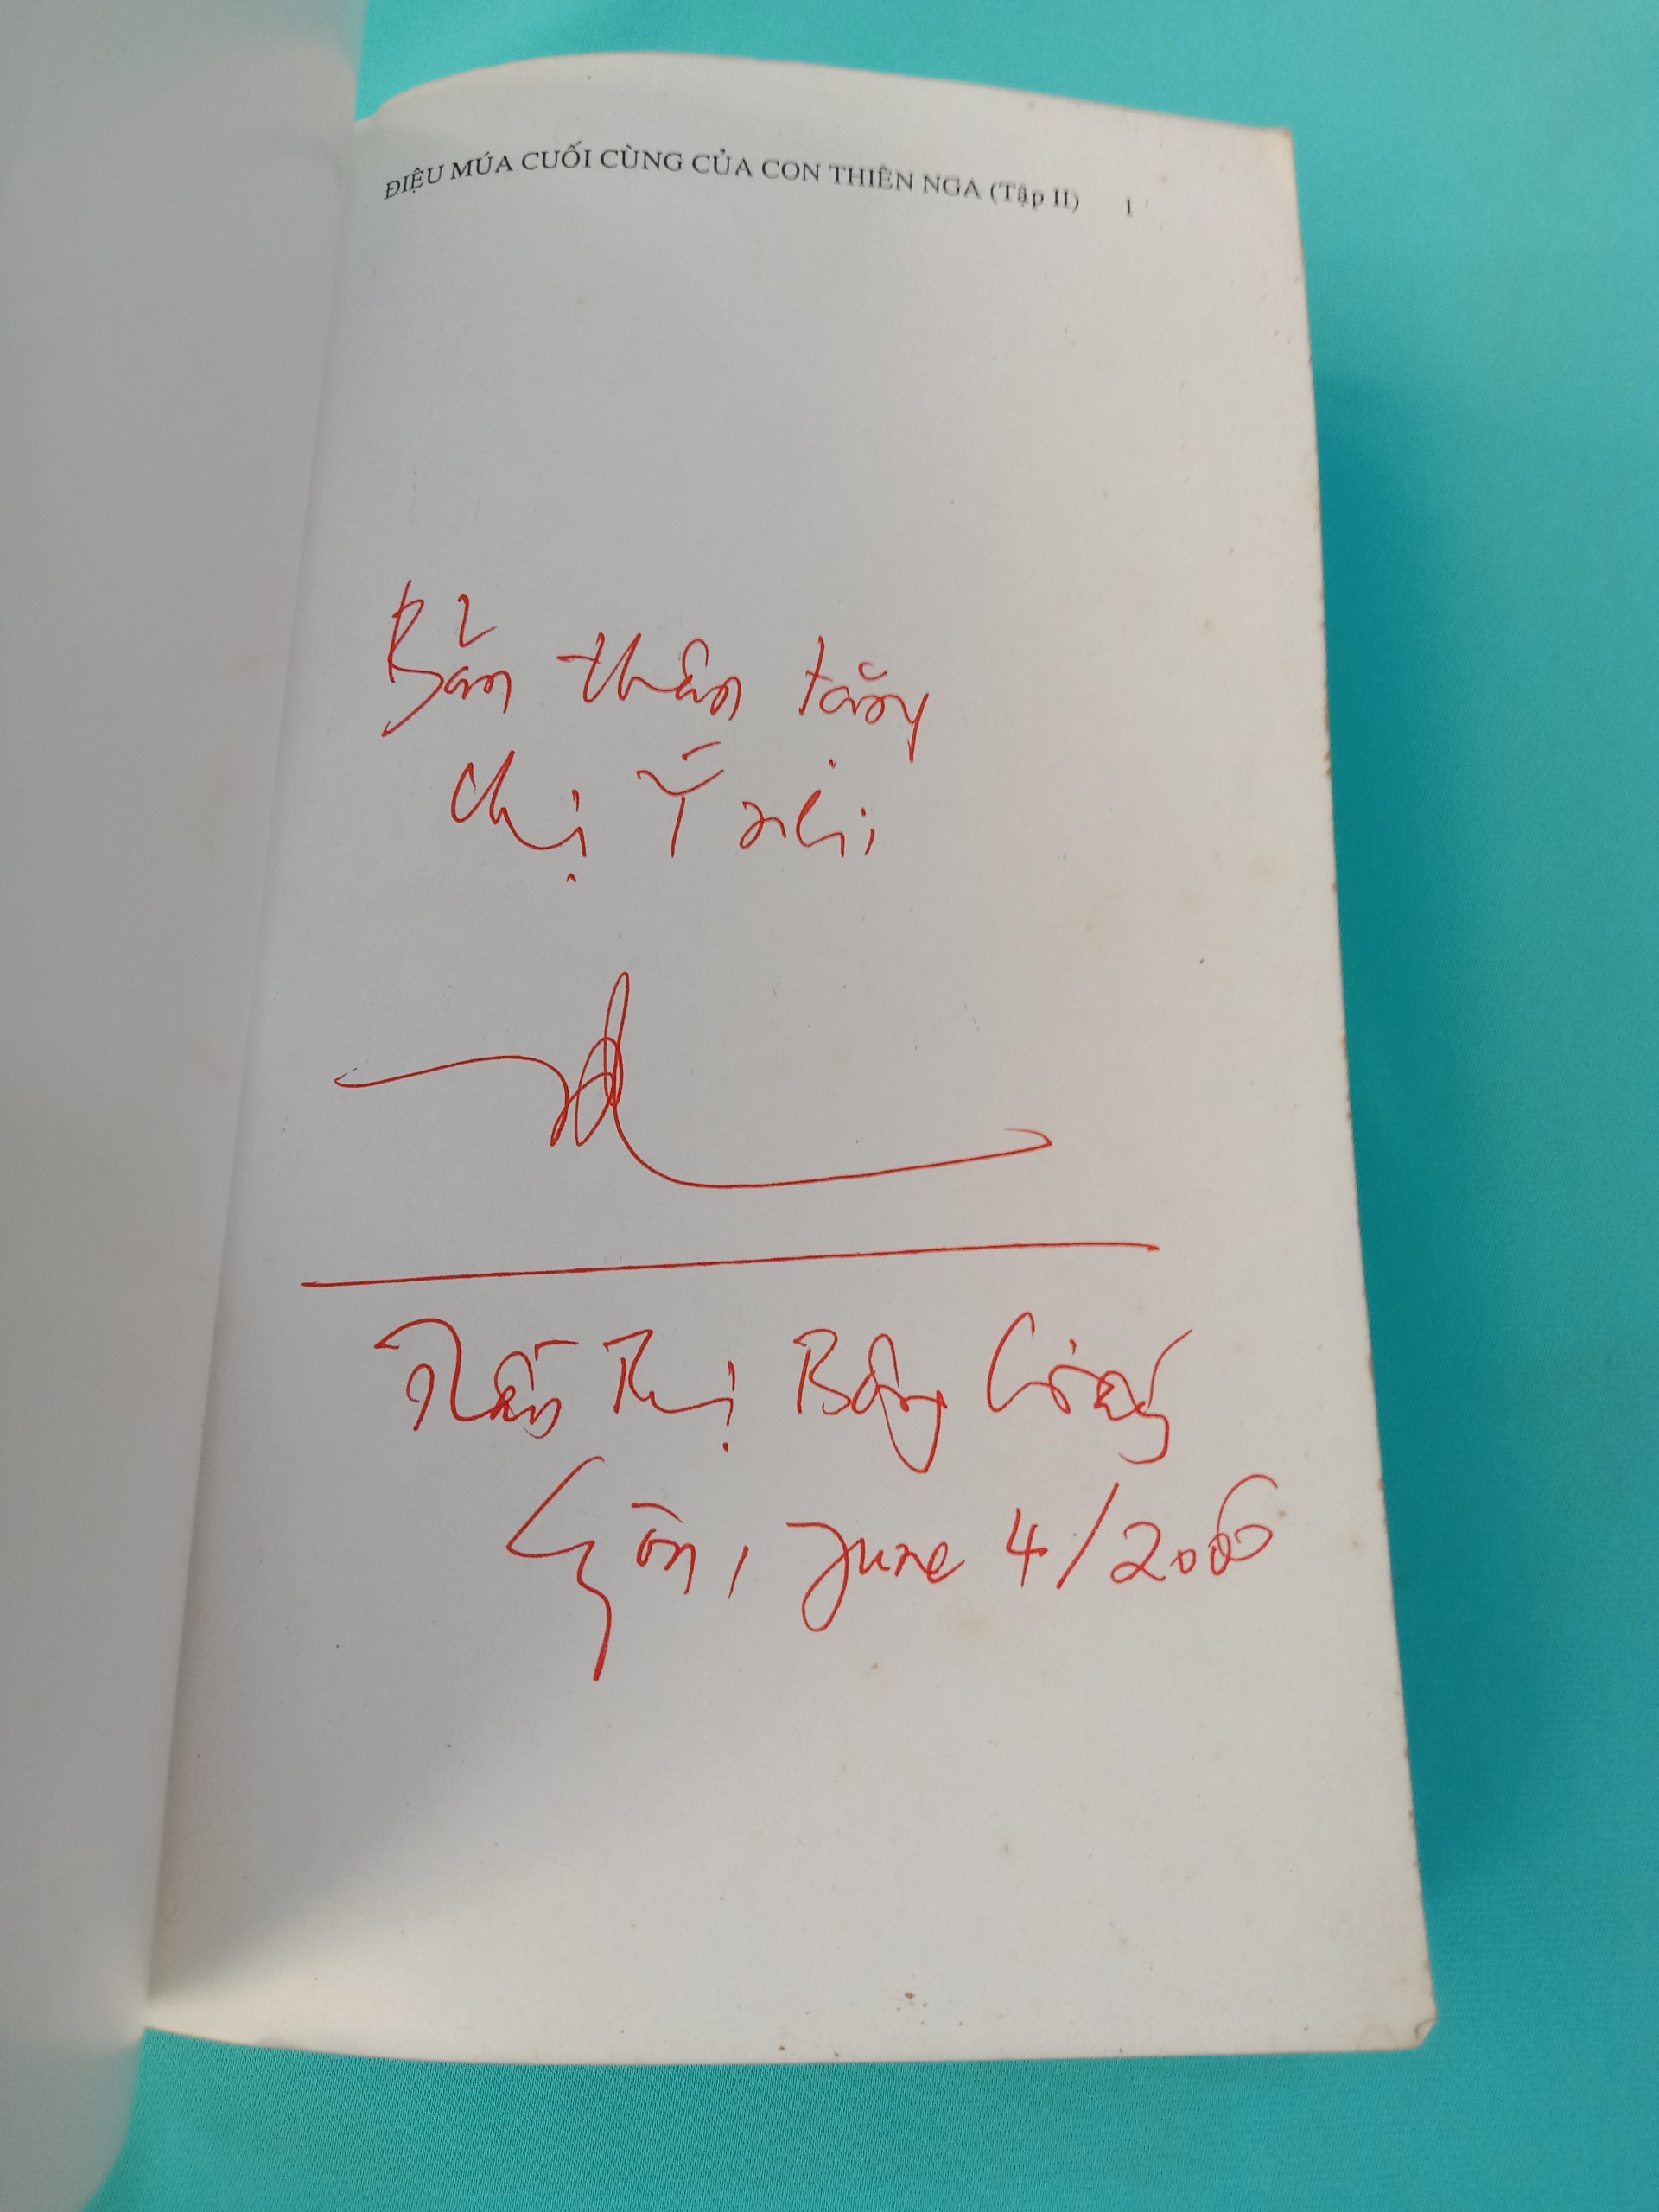 ĐIỆU MÚA CUỐI CÙNG CỦA CON THIÊN NGA (Tập II) 1
Bản thân tặng
chị Ý Nhi
Trần Thị Bông Giấy
Sgòn, June 4/2000